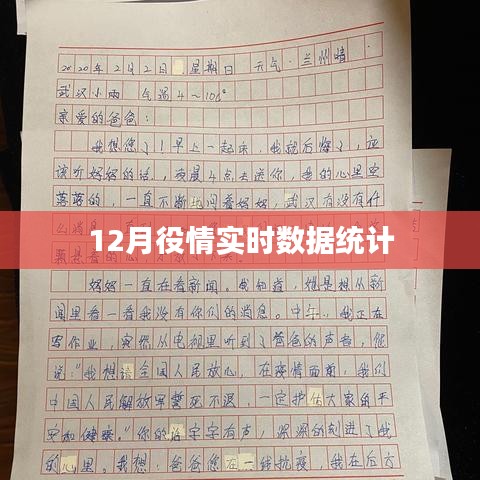 2020年2月2日 星期日 天气:兰州晴
武汉小雨 气温4~10℃
亲爱的爸爸:
我想您了!早上一起床,我就后悔了,应
该听妈妈的话,凌晨4点去送你,我的心里空
落落的,一直不断地问着妈妈,武汉有没有什
12月役情实时数据统计
妈妈一直在看新闻。我知道,她是想从新
闻里看一看我没有你们的消息。中午,我正在
写作业,突然从电视里听到了爸爸的声音,你
说:“我想请全国人民放心,在疫情面前,我们
中国人民解放军誓死不退,一定护佑大家的平
安和健康。”你的话字字有声,深深的刻进了我
的心里。我想:爸爸您在一线抗疫,我在后方